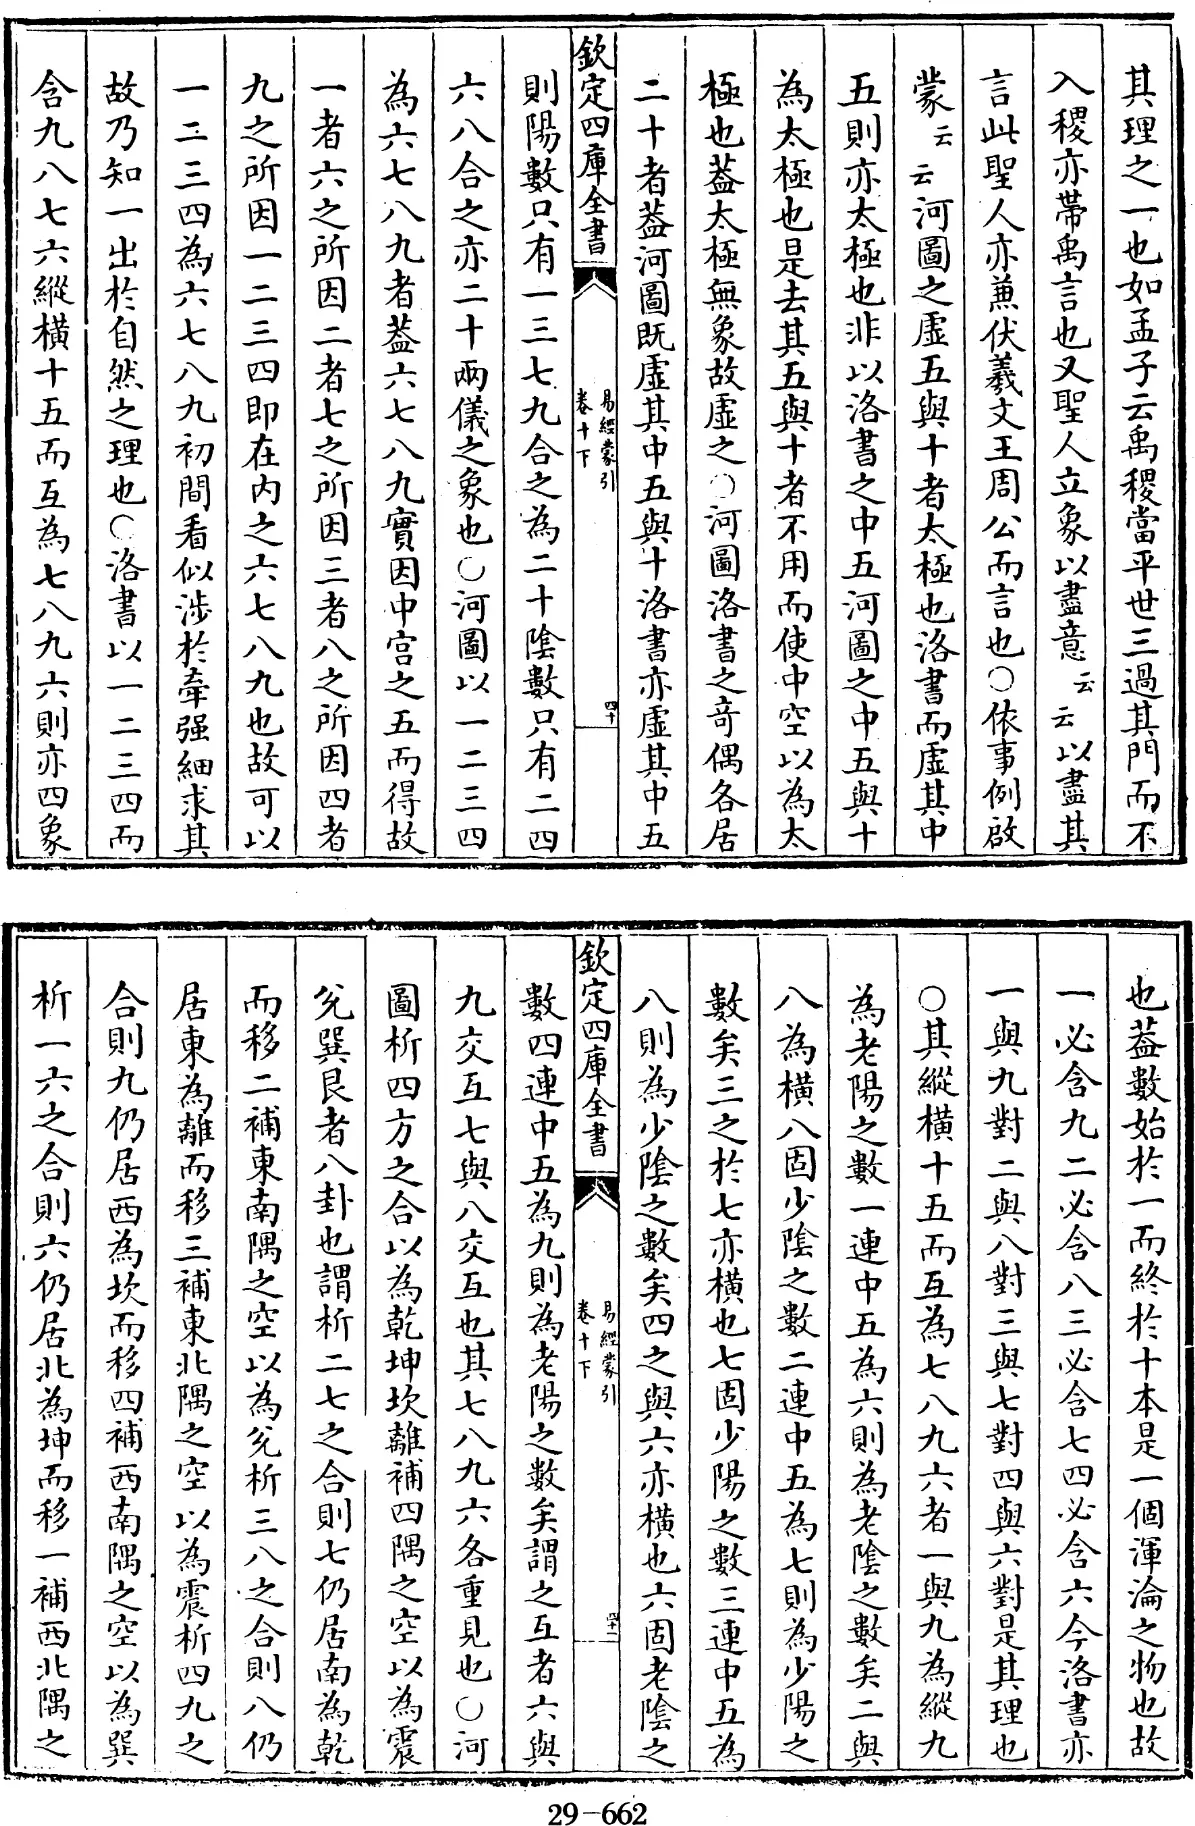 其理之一也如孟子云禹稷當平世三過其門而不
入稷亦帶禹言也又聖人立象以盡意云云以盡其
言此聖人亦兼伏羲文王周公而言也○依事例啟
蒙云云河圖之虛五與十者太極也洛書而虛其中
五則亦太極也非以洛書之中五河圖之中五與十
為太極也是去其五與十者不用而使中空以為太
極也葢太極無象故虛之○河圖洛書之奇偶各居
二十者葢河圖既虛其中五與十洛書亦虛其中五
欽定四庫全書
易經蒙引
卷十下
四十
則陽數只有一三七九合之為二十陰數只有二四
六八合之亦二十兩儀之象也○河圖以一二三四
為六七八九者葢六七八九實因中宫之五而得故
一者六之所因二者七之所因三者八之所因四者
九之所因一二三四即在内之六七八九也故可以
一二三四為六七八九初間看似涉於牽强細求其
故乃知一出於自然之理也○洛書以一二三四而
含九八七六縱橫十五而互為七八九六則亦四象
也葢數始於一而終於十本是一個渾淪之物也故
一必含九二必含八三必含七四必含六今洛書亦
一與九對二與八對三與七對四與六對是其理也
○其縱橫十五而互為七八九六者一與九為縱九
為老陽之數一連中五為六則為老陰之數矣二與
八為橫八固少陰之數二連中五為七則為少陽之
數矣三之於七亦橫也七固少陽之數三連中五為
八則為少陰之數矣四之與六亦橫也六固老陰之
欽定四庫全書
易經蒙引
卷十下
四十一
數四連中五為九則為老陽之數矣謂之互者六與
九交互七與八交互也其七八九六各重見也○河
圖析四方之合以為乾坤坎離補四隅之空以為震
兊巽艮者八卦也謂析二七之合則七仍居南為乾
而移二補東南隅之空以為兊析三八之合則八仍
居東為離而移三補東北隅之空以為震析四九之
合則九仍居西為坎而移四補西南隅之空以為巽
析一六之合則六仍居北為坤而移一補西北隅之
29-662